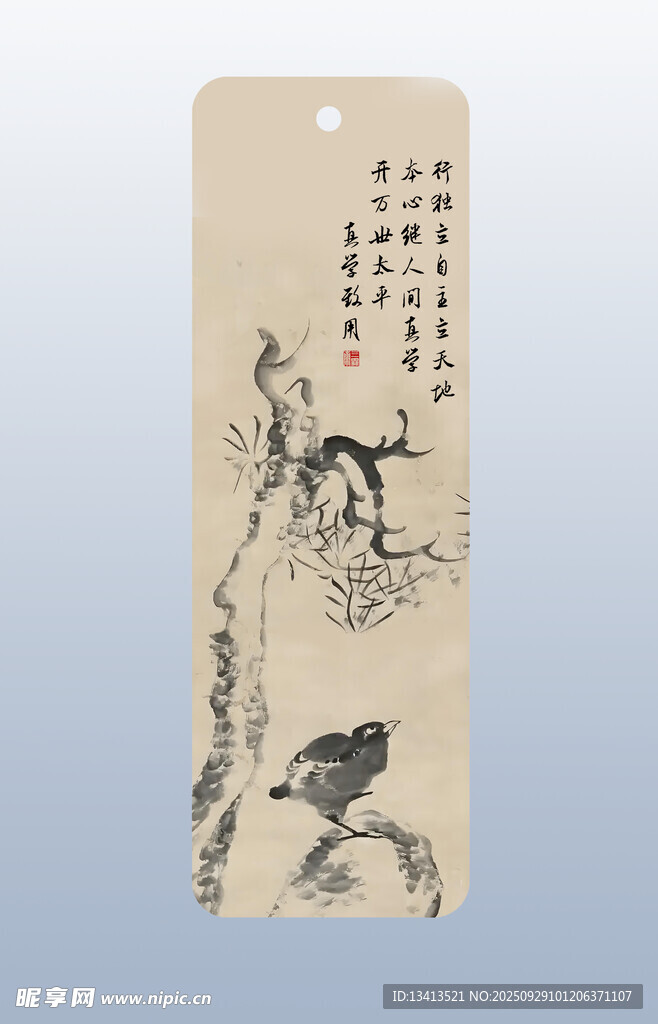 行独立自主立天地
本心继人间真学
开万世太平
真学致用
昵享网 www.nipic.cn
ID:13413521 NO:20250929101206371107